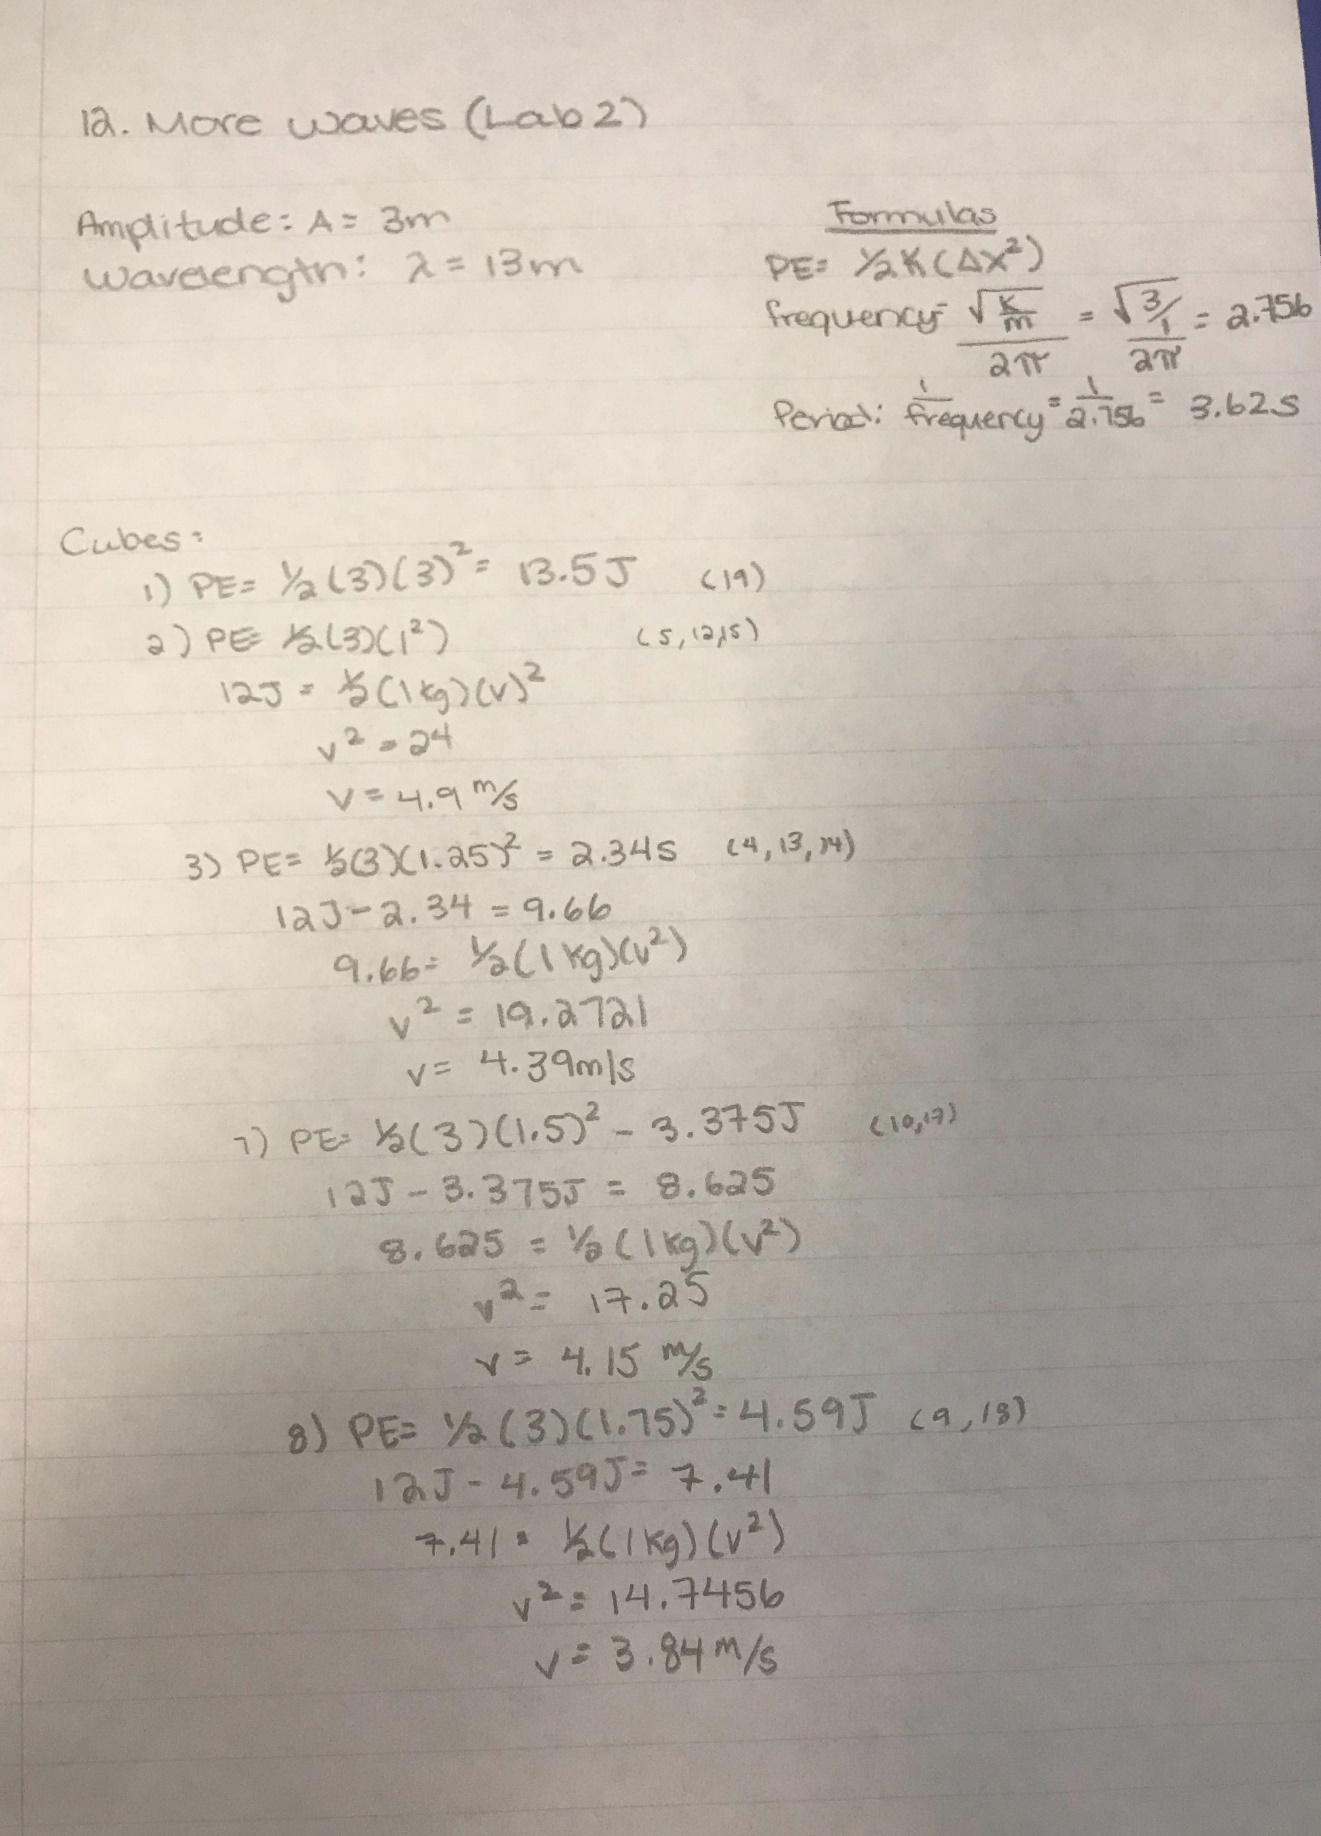 12. More waves (Lab 2)
Amplitude: A = 3m
Wavelength: λ = 13m
Formulas
PE= ½K(ΔX²)
frequency= √(K/m) / 2π = √(3/1) / 2π = 2.756
Period: 1/frequency = 1/2.756 = 3.62s
Cubes:
1) PE= ½(3)(3)² = 13.5J (19)
2) PE= ½(3)(1²) (5,12,15)
12J = ½(1kg)(v)²
v² = 24
v = 4.9 m/s
3) PE= ½(3)(1.25)² = 2.34s (4,13,14)
12J - 2.34 = 9.66
9.66= ½(1kg)(v²)
v² = 19.2721
v= 4.39m/s
7) PE= ½(3)(1.5)² - 3.375J (10,17)
12J - 3.375J = 8.625
8.625 = ½(1kg)(v²)
v² = 17.25
v= 4.15 m/s
8) PE= ½(3)(1.75)² = 4.59J (9,18)
12J - 4.59J = 7.41
7.41 = ½(1kg)(v²)
v² = 14.7456
v= 3.84 m/s